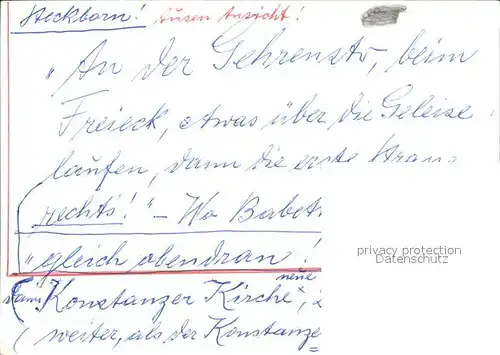 Steckborn! Ausen Ansicht!
"An der Gehrenstr, beim
Freieck, etwas über die Geleise
laufen, dann die erste
rechts!" - Wo Babet
"gleich obendran!
privacy protection
AnsichtskartenVersand.com
neue
dann Konstanzer Kirche,
(weiter, als der Konstanze